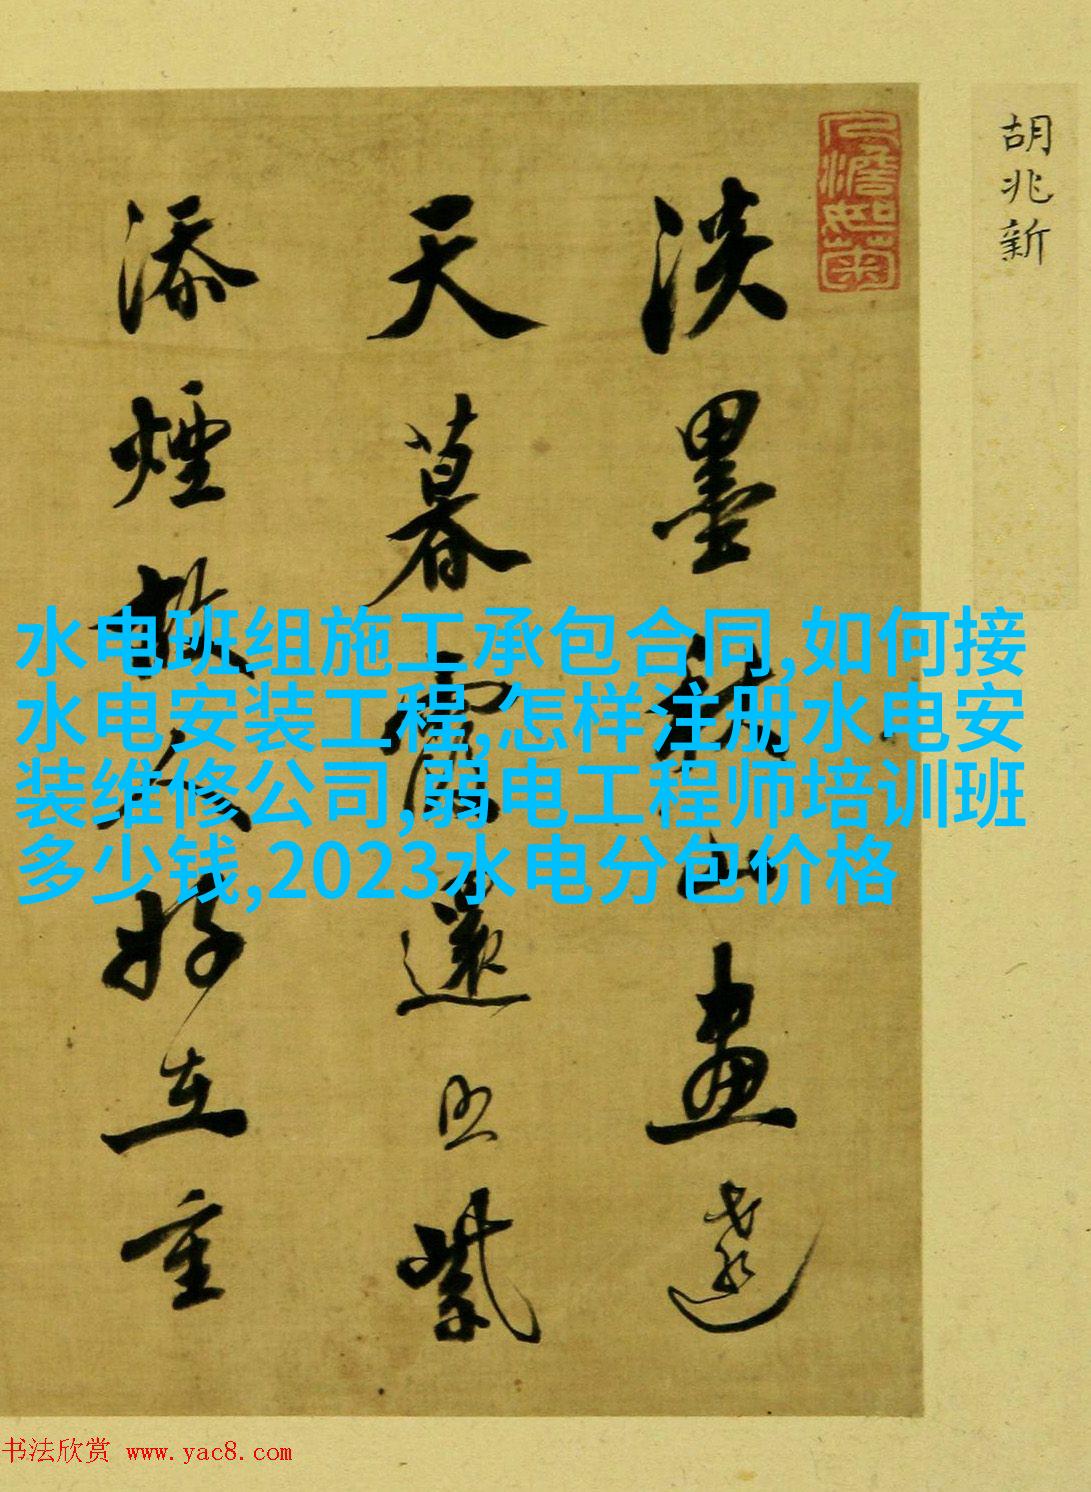 胡兆新
淡墨秋山畫遠
天暮霞還照紫
添煙故人好在重
水电班组施工承包合同,如何接
水电安装工程,怎样注册水电安
装维修公司,弱电工程师培训班
多少钱,2023水电分包价格
书法欣赏 www.yac8.com